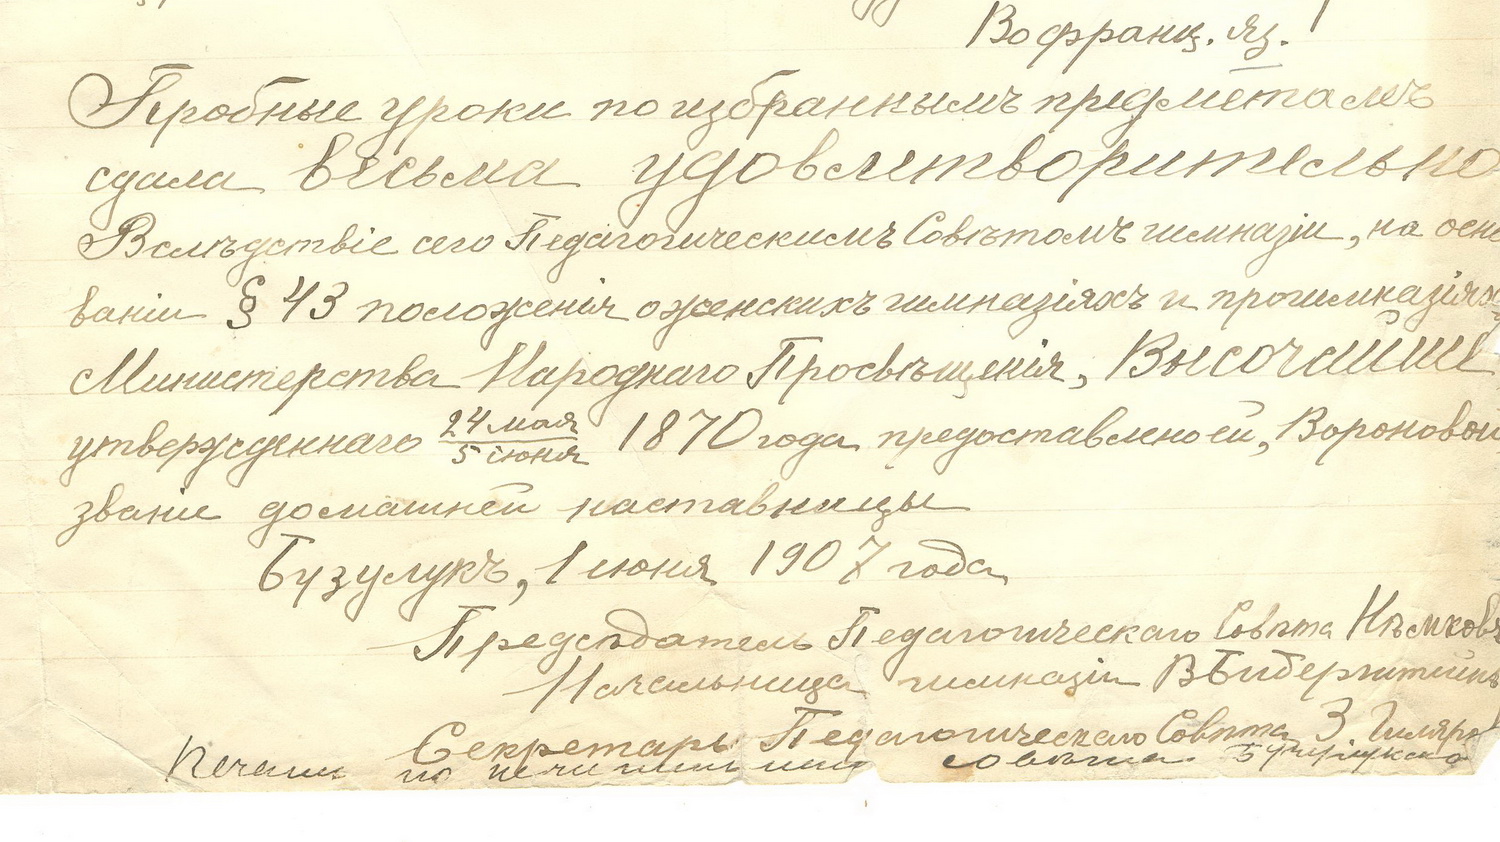 Во франц. яз.
Пробные уроки по избраннымъ предметамъ
сдала весьма удовлетворительно
Вслѣдствіе сего Педагогическимъ Совѣтомъ гимназіи, на осно
ваніи § 43 положенія о женскихъ гимназіяхъ и прогимназіяхъ
Министерства Народнаго Просвѣщенія, Высочайше
утвержденнаго 24 мая / 5 іюня 1870 года предоставлено ей, Вороновой
званіе домашней наставницы
Бузулукъ, 1 июня 1907 года
Предсѣдатель Педагогическаго Совѣта Нѣмковъ
Начальница гимназіи
Секретарь Педагогическаго Совѣта З. Гиляров
Печати